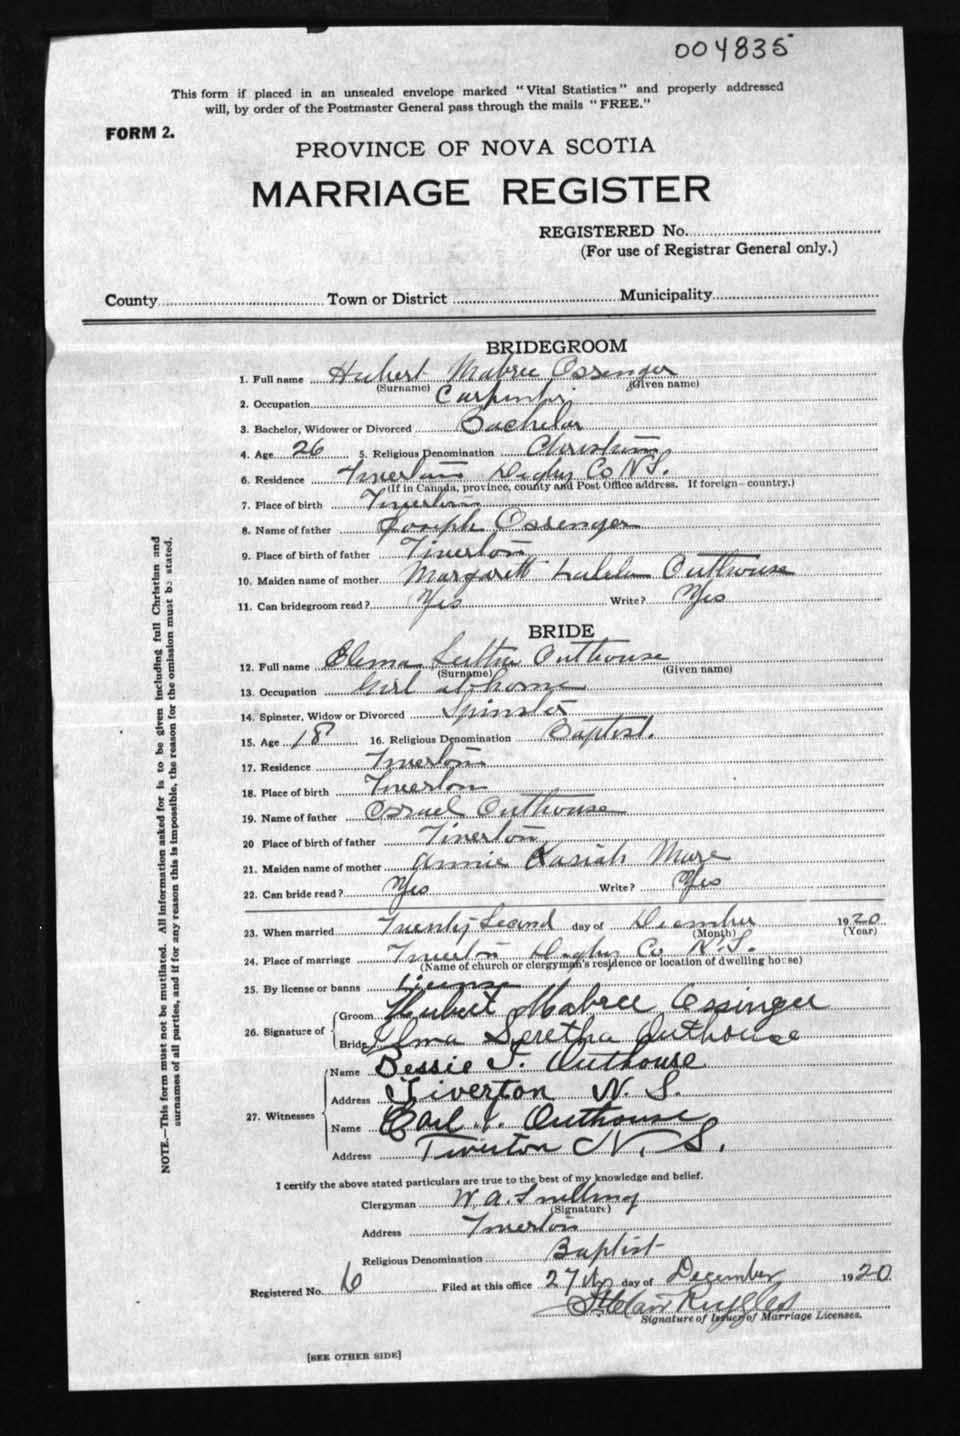 004835
This form if placed in an unsealed envelope marked "Vital Statistics" and properly addressed
will, by order of the Postmaster General pass through the mails "FREE."
FORM 2.
PROVINCE OF NOVA SCOTIA
MARRIAGE REGISTER
REGISTERED No.
(For use of Registrar General only.)
County Town or District Municipality
BRIDEGROOM
1. Full name Hubert Mabree Ossenger
(Surname) (Given name)
2. Occupation Carpenter
3. Bachelor, Widower or Divorced Bachelor
4. Age 26 5. Religious Denomination Christian
6. Residence Tiverton Digby Co N.S.
(If in Canada, province, county and Post Office address. If foreign—country.)
7. Place of birth Tiverton
8. Name of father Joseph Ossenger
9. Place of birth of father Tiverton
10. Maiden name of mother Margarett Outhouse
11. Can bridegroom read? Yes Write? Yes
BRIDE
12. Full name Elema Outhouse
(Surname) (Given name)
13. Occupation Girl at home
14. Spinster, Widow or Divorced Spinster
15. Age 18 16. Religious Denomination Baptist.
17. Residence Tiverton
18. Place of birth Tiverton
19. Name of father Outhouse
20 Place of birth of father Tiverton
21. Maiden name of mother Annie Kasiah
22. Can bride read? Yes Write? Yes
23. When married Twenty Second day of December 1920
(Month) (Year)
24. Place of marriage Tiverton Digby Co N.S.
(Name of church or clergyman's residence or location of dwelling house)
25. By license or banns License
26. Signature of Groom Hubert Mabree Ossinger
Bride Elma Seretha Outhouse
27. Witnesses
Name Bessie J. Outhouse
Address Tiverton N. S.
Name Carl I. Outhouse
Address Tiverton N. S.
I certify the above stated particulars are true to the best of my knowledge and belief.
Clergyman W. A. Snelling
(Signature)
Address Tiverton
Religious Denomination Baptist
Registered No. 6 Filed at this office 27th day of December 1920
Ruggles
Signature of Issuer of Marriage Licenses.
[SEE OTHER SIDE]
NOTE.—This form must not be mutilated. All information asked for is to be given including full Christian and
surnames of all parties, and if for any reason this is impossible, the reason for the omission must be stated.